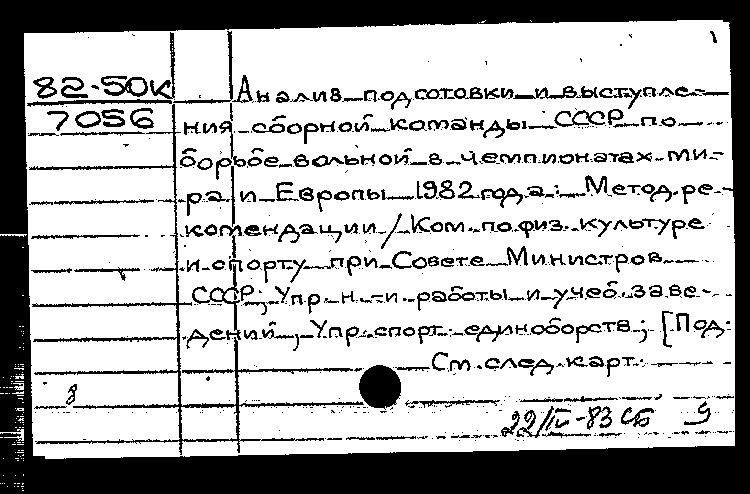 82-50к Анализ подготовки и выступле-
7056 ния сборной команды СССР по
борьбе вольной в чемпионатах ми-
ра и Европы 1982 года: Метод. ре-
комендации / Ком. по физ. культуре
и спорту при Совете Министров
СССР; Упр. н.-и. работы и учеб. заве-
дений, Упр. спорт. единоборств; [Под.
См. след. карт.
22/IV-83 СБ 9